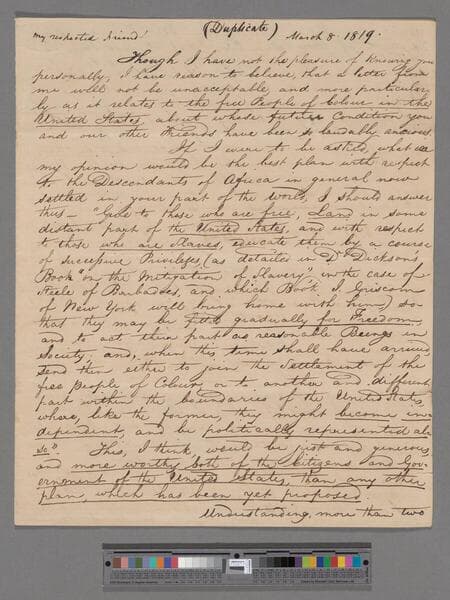 (Duplicate)
My respected Friend March 8. 1819.
Though I have not the pleasure of knowing you
personally, I have reason to believe, that a letter from
me will not be unacceptable, and more particular,,
by as it relates to the free People of Colour in the
United States, about whose future Condition you
and our other Friends have been so laudably anxious.
If I were to be asked, what in
my opinion would be the best plan with respect
to the Descendants of Africa in general now
settled in your part of the World, I should answer
thus— "Give to those who are free, Land in some
distant part of the United States, and with respect
to those who are Slaves, educate them by a course
of successive Privileges, (as detailed in Dr Dickson's
Book "on the Mitigation of Slavery" in the case of
Steele of Barbadoes, and which Book J. Griscom
of New York will bring home with him) so
that they may be fitted gradually for Freedom,
and to act their part as reasonable Beings in
Society: and, when this time shall have arrived,
send them either to join the Settlement of the
free People of Colour, or to another and different
part within the boundaries of the United States,
where, like the former, they might become in=
dependent, and be politically represented al=
so." This, I think, would be just and generous,
and more worthy both of the Citizens and Gov=
ernment of the United States, than any other
plan, which has been yet proposed.
Understanding, more than two